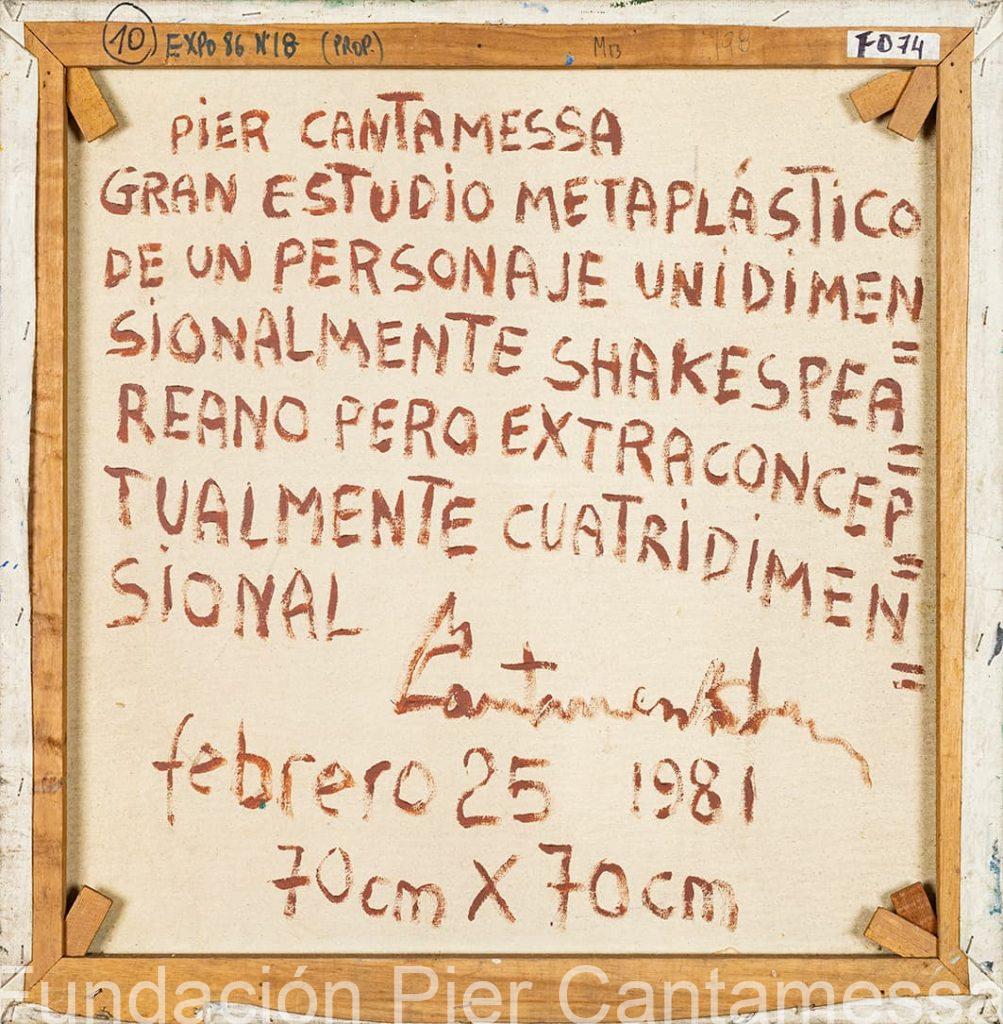 10 EXPO 86 Nº18 (PROP.)
FD74
PIER CANTAMESSA
GRAN ESTUDIO METAPLÁSTICO
DE UN PERSONAJE UNIDIMEN=
SIONALMENTE SHAKESPEA=
REANO PERO EXTRACONCEP=
TUALMENTE CUATRIDIMEN=
SIONAL
Cantamessa
febrero 25 1981
70cm X 70cm
Fundación Pier Cantamessa